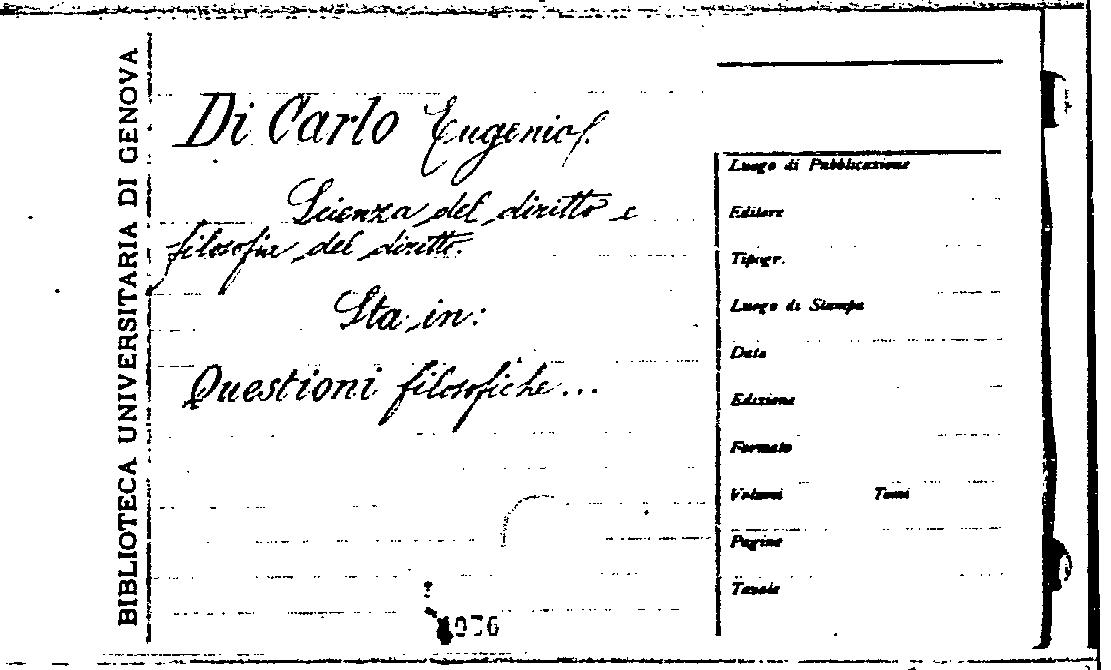 BIBLIOTECA UNIVERSITARIA DI GENOVA
Di Carlo Eugenio.
Scienza del diritto e
filosofia del diritto.
Sta in:
Questioni filosofiche...
Luogo di Pubblicazione
Editore
Tipogr.
Luogo di Stampa
Data
Edizione
Formato
Volumi Tomi
Pagine
Tavole